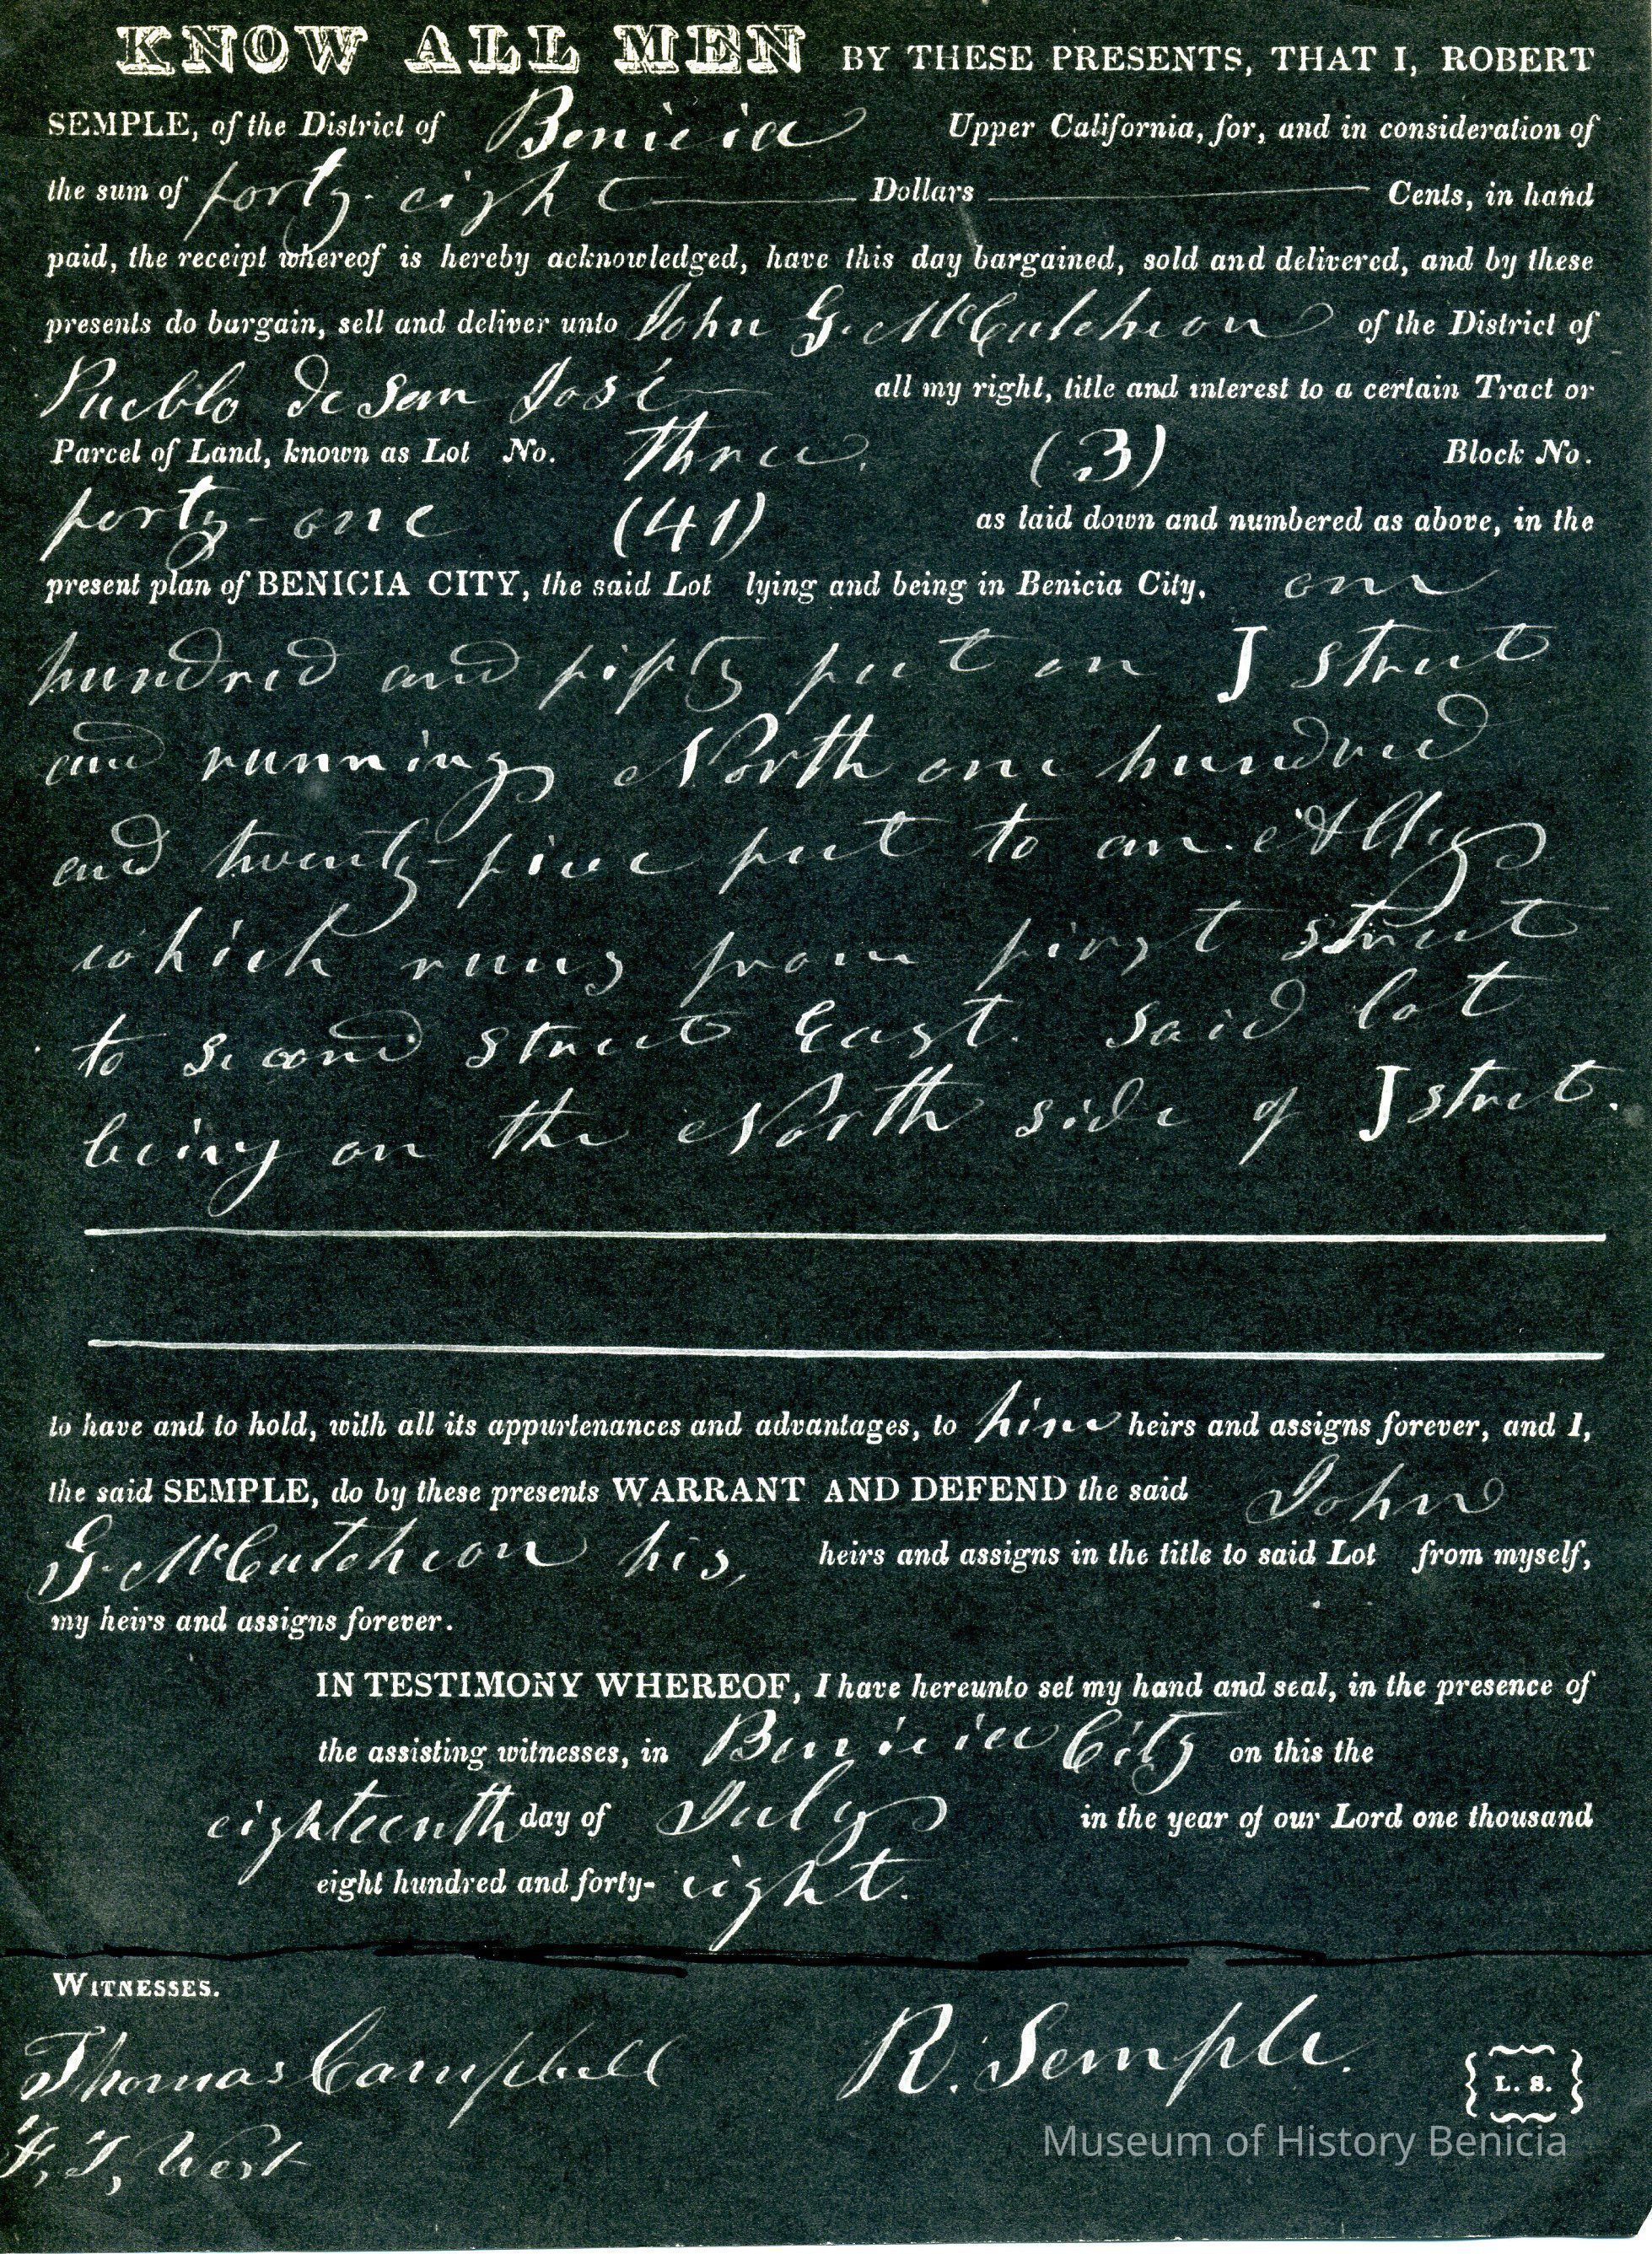 KNOW ALL MEN BY THESE PRESENTS, THAT I, ROBERT
SEMPLE, of the District of Benicia Upper California, for, and in consideration of
the sum of forty-eight Dollars Cents, in hand
paid, the receipt whereof is hereby acknowledged, have this day bargained, sold and delivered, and by these
presents do bargain, sell and deliver unto John G. McCutcheon of the District of
Pueblo de San José all my right, title and interest to a certain Tract or
Parcel of Land, known as Lot No. three. (3) Block No.
forty-one (41) as laid down and numbered as above, in the
present plan of BENICIA CITY, the said Lot lying and being in Benicia City, one
hundred and fifty feet on J Street
and running North one hundred
and twenty-five feet to an Alley
which runs from first street
to second street East. Said lot
being on the North side of J street.
to have and to hold, with all its appurtenances and advantages, to him heirs and assigns forever, and I,
the said SEMPLE, do by these presents WARRANT AND DEFEND the said John
G. McCutcheon his, heirs and assigns in the title to said Lot from myself,
my heirs and assigns forever.
IN TESTIMONY WHEREOF, I have hereunto set my hand and seal, in the presence of
the assisting witnesses, in Benicia City on this the
eighteenth day of July in the year of our Lord one thousand
eight hundred and forty-eight.
WITNESSES.
Thomas Campbell R. Semple. L. S.
F. J. West
Museum of History Benicia